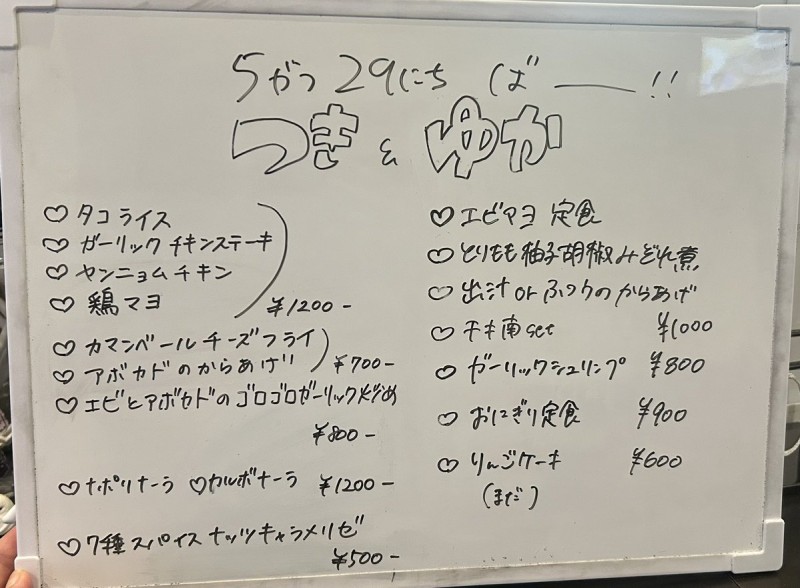 5がつ 29にち ば ー !!
つき & ゆか
♡ タコライス
♡ ガーリックチキンステーキ
♡ ヤンニョムチキン
♡ 鶏マヨ ¥1200-
♡ カマンベールチーズフライ
♡ アボカドのからあげ ¥700-
♡ エビとアボカドのゴロゴロガーリック炒め
¥800-
♡ナポリナーラ ♡カルボナーラ ¥1200-
♡ 7種スパイスナッツキャラメリゼ
¥500-
♡ エビマヨ 定食
♡ とりもも柚子胡椒みぞれ煮
♡ 出汁 or ふつうのからあげ
♡ チキ南set ¥1000
♡ ガーリックシュリンプ ¥800
♡ おにぎり定食 ¥900
♡ りんごケーキ ¥600
(まだ)